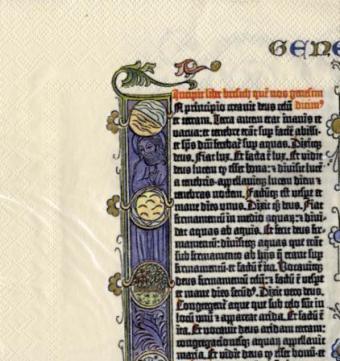 GENE
Incipit liber bresith quē nos genesim
A principio creauit deus celū dicimꝰ
et terram. Terra autem erat inanis et
uacua: et tenebre erāt sup facie abissi:
et sps dni ferebat᷑ sup aquas. Dixitqꝫ
deus. Fiat lux. Et facta ē lux. Et vidit
deus lucem qꝫ esset bona: et diuisit lucē
a tenebris: appellauitqꝫ lucem diem et
tenebras noctem. Factūqꝫ est vespe et
mane dies unus. Dixit qꝫ deus. Fiat
firmamentū in medio aquaꝝ: et diui-
dat aquas ab aquis. Et fecit deus fir-
mamentū: diuisitqꝫ aquas que erāt
sub firmamento ab hijs q̄ erant sup
firmamentū: et factū ē ita. Vocauitqꝫ
deus firmamentū celū: et factū ē vespe
et mane dies secūdꝰ. Dixit vero deus.
Congregent᷑ aque que sub celo sūt in
locū unū et appareat arida. Et factū ē
ita. Et vocauit deus aridam terram:
congregacionesqꝫ aquaꝝ appellauit
maria. Et vidit deus qꝫ esset bonū et